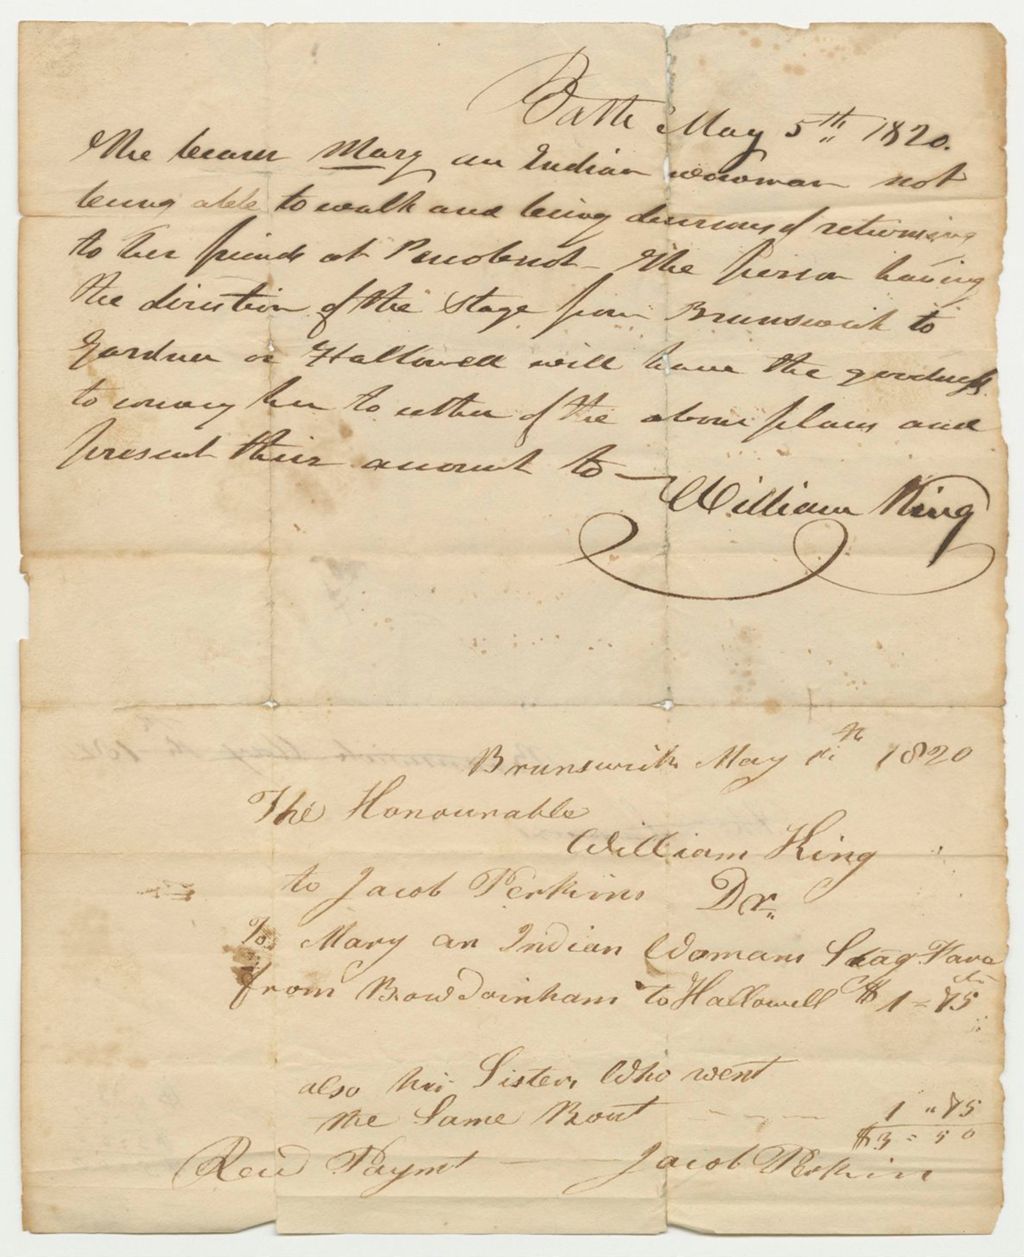 Bath May 5th 1820.
The bearer Mary an Indian woman not
being able to walk and being desirous of returning
to her friends at Penobscot - The person having
the direction of the Stage from Brunswick to
Gardner or Hallowell will have the goodness
to convey her to either of the above places and
present their account to -
William King
Brunswick May 1820
The Honourable
William King
to Jacob Perkins Dr.
To Mary an Indian Womans Stag Fare
from Bowdoinham to Hallowell $ 1 = 75
also hir Sister Who went
the Same Rout - - - - 1 " 75
$3 = 50
Recd Paymt — Jacob Perkins